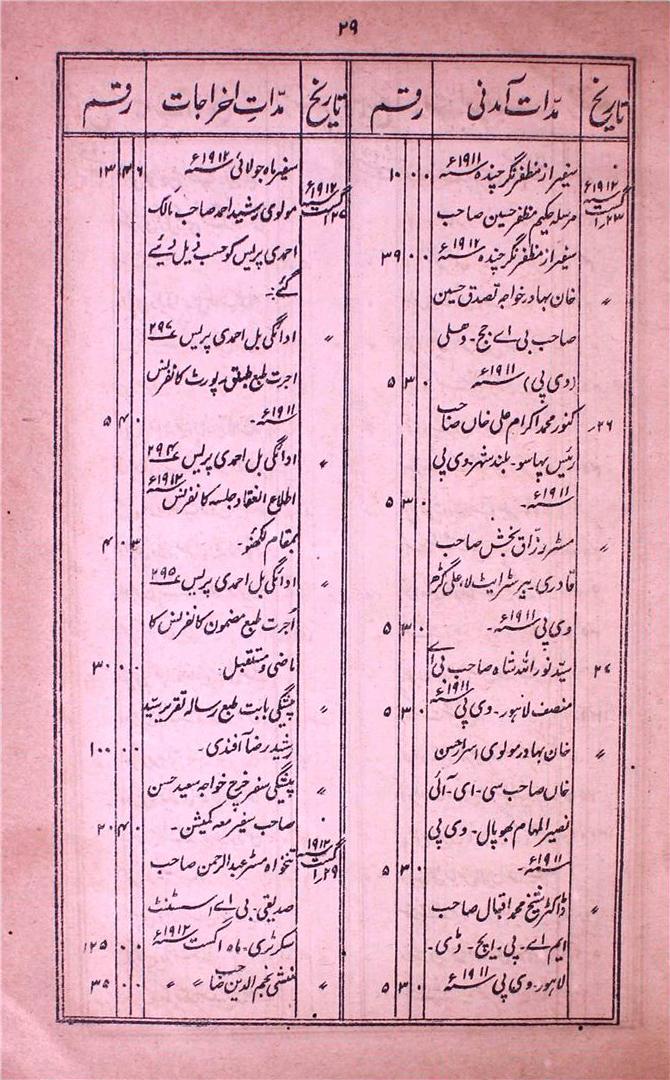 ۲۹
تاریخ مدّات آمدنی رقم
۲۳؍اگست ۱۹۱۲ء سفیر از مظفر نگر چندہ ۱۹۱۱ء ۱۰ ۰ ۰
مرسلہ حکیم مظفر حسین صاحب
سفیر از مظفر نگر چندہ ۱۹۱۲ء ۳۹ ۰ ۰
〃 خان بہادر خواجہ تصدق حسین
صاحب بی اے جج۔ دہلی
(وی پی) ۱۹۱۱ء ۵ ۳ ۰
۲۶؍ کنور محمد اکرام علی خاں صاحب
رئیس پہاسو۔ بلند شہر۔ وی پی
۱۹۱۱ء۔ ۵ ۳ ۰
〃 مسٹر رزّاق بخش صاحب
قادری۔ بیرسٹر ایٹ لا۔ علی گڑھ
وی پی ۱۹۱۱ء۔ ۵ ۳ ۰
۲۷ سیّد نور اللہ شاہ صاحب بی اے
منصف لاہور۔ وی پی ۱۹۱۱ء ۵ ۳ ۰
〃 خان بہادر مولوی اسرار حسن
خاں صاحب سی۔ ای۔ آئی
نصیر المہام بھوپال۔ وی پی
۱۹۱۱ء۔ ۵ ۳ ۰
〃 ڈاکٹر شیخ محمد اقبال صاحب
ایم اے۔ پی۔ ایچ۔ ڈی۔
لاہور۔ وی پی ۱۹۱۱ء ۵ ۳ ۰
تاریخ مدّاتِ اخراجات رقم
سفیر ماہ جولائی ۱۹۱۲ء ۱۳ ۴ ۶
۲۷؍اگست ۱۹۱۲ء مولوی رشید احمد صاحب مالک
احمدی پریس کو حسب ذیل دیئے
گئے:۔
〃 ادائگی بل احمدی پریس ۲۹۷
اجرت طبع رپورٹ کانفرنس
۱۹۱۱ء۔ ۵ ۴ ۰
〃 ادائگی بل احمدی پریس ۲۹۴
اطلاع انعقاد جلسہ کانفرنس ۱۹۱۲ء
بمقام لکھنؤ۔ ۴ ۰ ۳
〃 ادائگی بل احمدی پریس ۲۹۵
اُجرت طبع مضمون کانفرنس کا
ماضی و مستقبل۔ ۳۰ ۰ ۰
〃 پیشگی بابت طبع رسالہ تقریر سیّد
رشید رضا آفندی۔ ۱۰۰ ۰ ۰
〃 پیشگی سفر خرچ خواجہ سعید حسن
صاحب سفیر معہ کمیشن۔ ۲۰ ۴ ۰
۲۹؍اگست ۱۹۱۲ تنخواہ مسٹر عبدالرحمن صاحب
صدیقی۔ بی اے۔ اسسٹنٹ
سکرٹری۔ ماہ اگست ۱۹۱۲ء ۱۲۵ ۰ ۰
〃 منشی نجم الدین صاحب 〃 〃 ۳۵ ۰ ۰